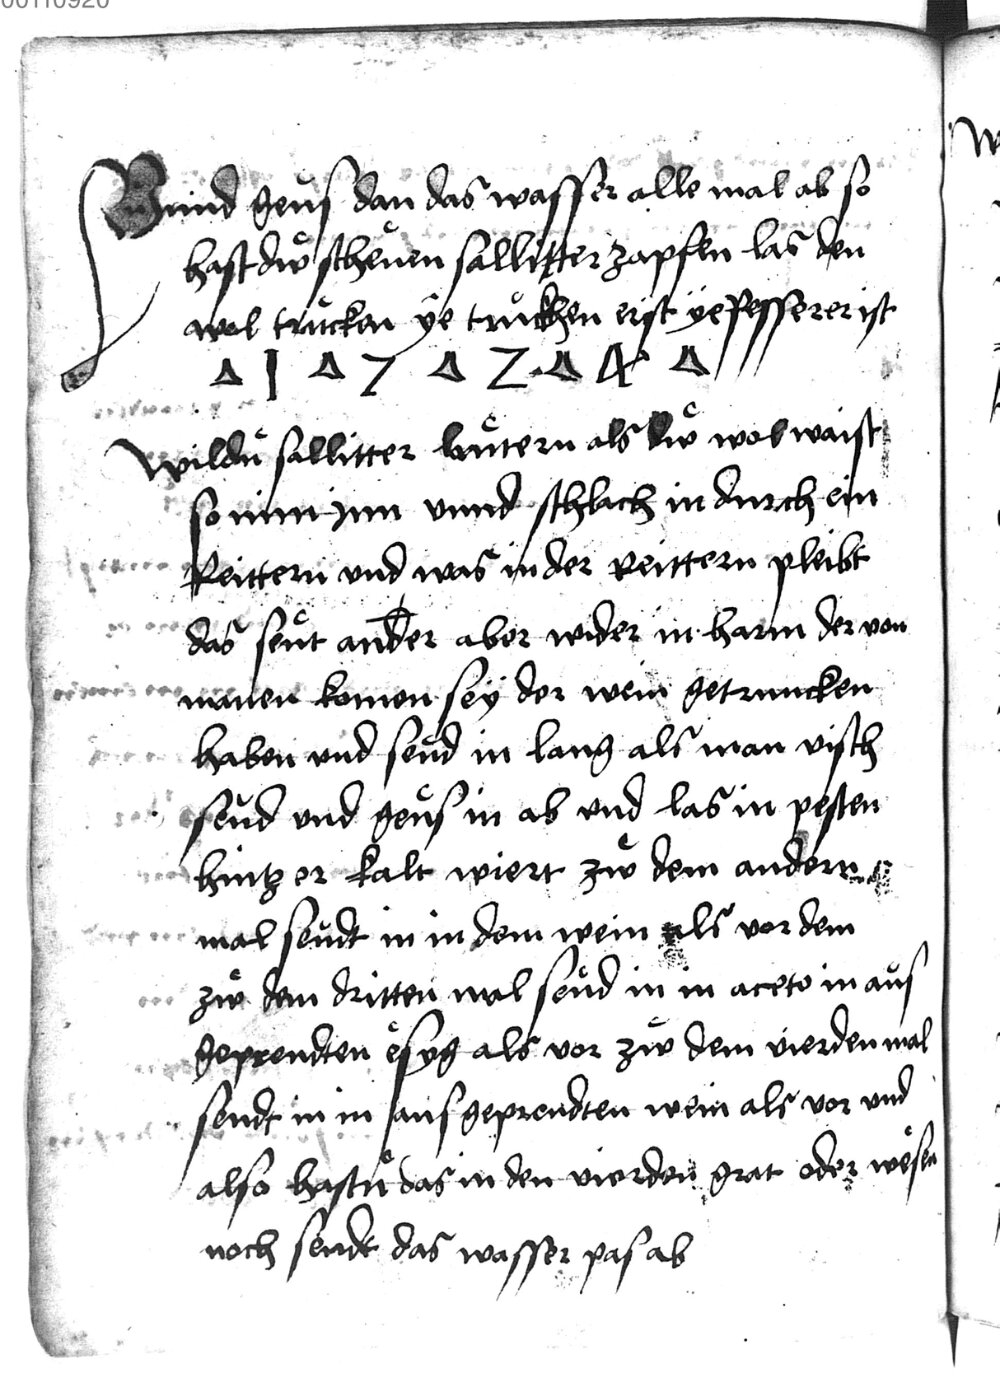 00110920
Vnnd geus dan das wasser alle mal ab so
hast dẘ scheůen sallitter zapfen las den
wol trůcken ÿe trůckhen er ist ÿe pesserer ist
1 7 Z 4
Wildů sallitter lůttern als dẘ wol waist
so nim jnn vnnd schlach in durch ein
Reittern vnd was in der Reittern pleibt
das seůt ander aber wider in harm der von
manen komen seÿ der wein getruncken
haben vnd seůd in lang als man visch
seůd vnd geůs in ab vnd las in pesten
hintz er kalt wiert zẘ dem andern
mal seůdt in in dem wein als vor dem
zẘ dem dritten mal seůd in in aceto in aůs
geprendten ësyg als vor zẘ dem vierden mal
seudt in in aus geprendten wein als vor vnd
also hastů das in den vierden grat oder wësen
noch seudt das wasser pas ab